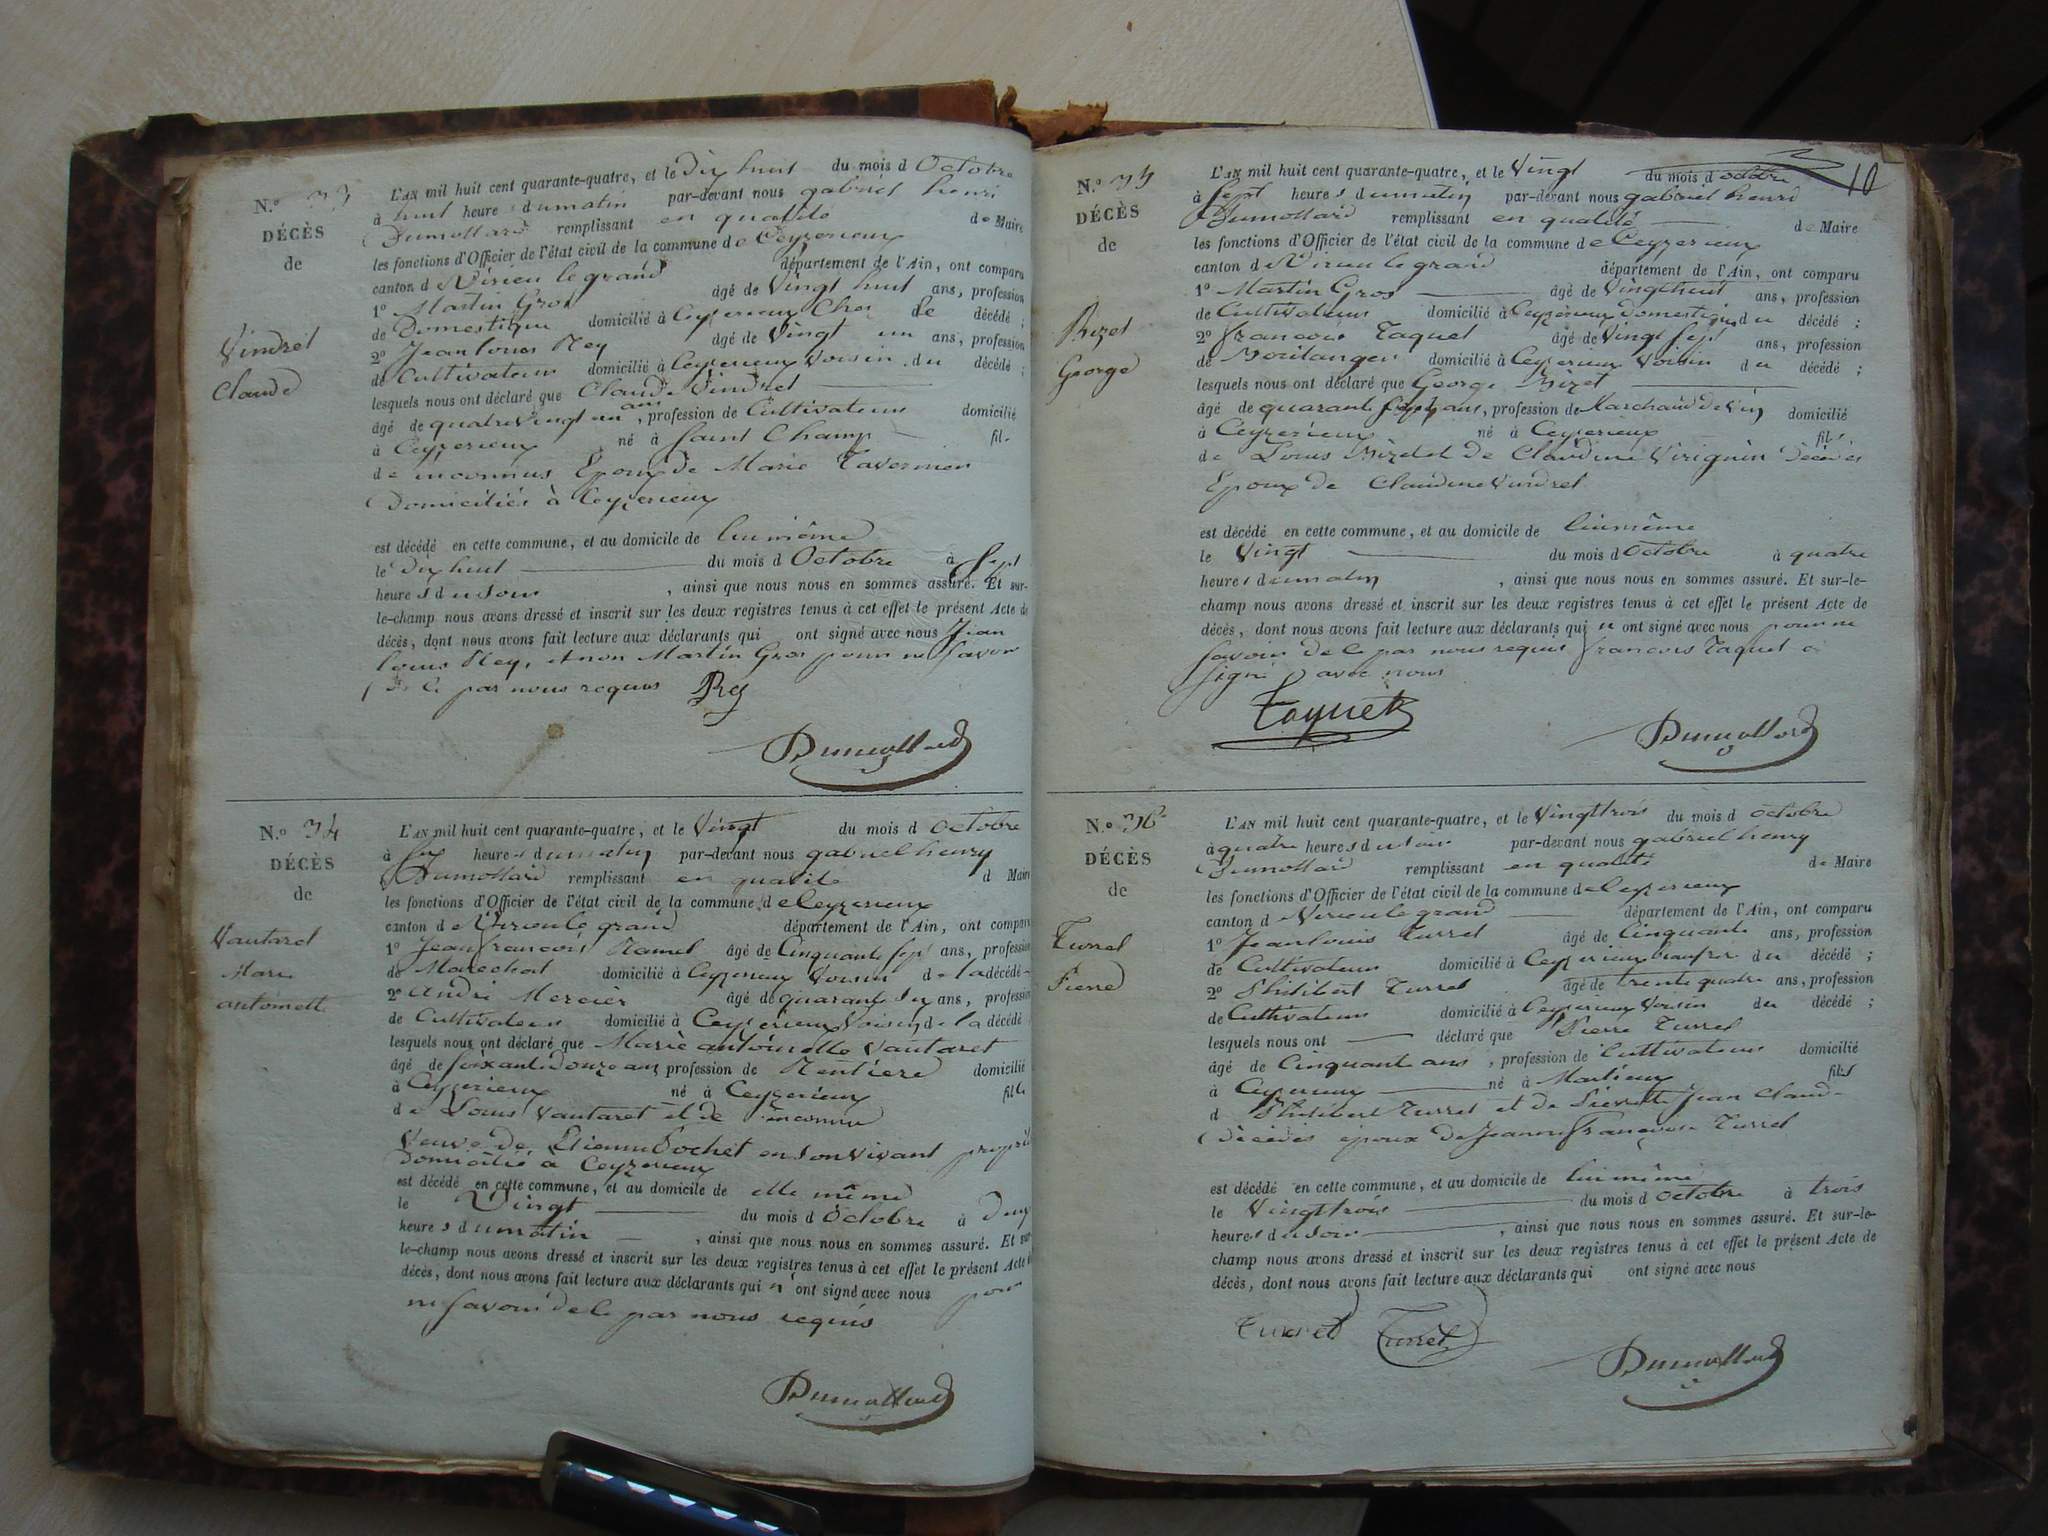 N.º 33
DÉCÈS
de
Vindret
Claude
L'AN mil huit cent quarante-quatre, et le Dix huit du mois d Octobre
à huit heure dumatin par-devant nous gabriel henri
Dumollard remplissant en qualité de Maire
les fonctions d'Officier de l'état civil de la commune de Ceyzerieux
canton d Virieu legrand département de l'Ain, ont comparu
1º Martin Gros âgé de Vingt huit ans, profession
de Domestique domicilié à Ceyzerieux Chez le décédé ;
2º Jean louis Rey âgé de Vingt un ans, profession
de Cultivateur domicilié à Ceyzerieux Voisin du décédé ;
lesquels nous ont déclaré que Claude Vindret
âgé de quatrevingt un ans, profession de Cultivateur domicilié
à Ceyzerieux né à Saint Champ fil
de inconnus Epoux de Marie Tavernier
Domiciliés à Ceyzerieux
est décédé en cette commune, et au domicile de lui même
le Dix huit du mois d Octobre à Sept
heures du soir, ainsi que nous nous en sommes assuré. Et sur-
le-champ nous avons dressé et inscrit sur les deux registres tenus à cet effet le présent Acte de
décès, dont nous avons fait lecture aux déclarants qui ont signé avec nous Jean
louis Rey, et non Martin Gros pour ne savoir
de ce par nous requis Rey
Dumollard
N.º 34
DÉCÈS
de
Vautaret
Marie
antoinette
L'AN mil huit cent quarante-quatre, et le Vingt du mois d octobre
à six heures dumatin par-devant nous gabriel henry
Dumollard remplissant en qualité d Maire
les fonctions d'Officier de l'état civil de la commune de Ceyzerieux
canton de Virieu le grand département de l'Ain, ont comparu
1º Jean françois Ramel âgé de Cinquante sept ans, profession
de Marechal domicilié à Ceyzerieux Voisin de la décédé
2º andré Mercier âgé de quarante six ans, profession
de Cultivateur domicilié à Ceyzerieux Voisin de la décédé
lesquels nous ont déclaré que Marie antoinette Vautaret
âgé de soixante Douze ans profession de Rentiere domicilié
à Ceyzerieux né à Ceyzerieux fille
de Louis Vautaret et de inconnue
Veuve de Etienne Pochet en son vivant propri
Domicilié à Ceyzerieux
est décédé en cette commune, et au domicile de elle même
le Vingt du mois d octobre à Deux
heures du matin, ainsi que nous nous en sommes assuré. Et sur
le-champ nous avons dressé et inscrit sur les deux registres tenus à cet effet le présent Acte
décès, dont nous avons fait lecture aux déclarants qui n'ont signé avec nous pour
ne savoir de ce par nous requis
Dumollard
10
N.º 35
DÉCÈS
de
Bizet
George
L'AN mil huit cent quarante-quatre, et le Vingt du mois d octobre
à Sept heures dumatin par-devant nous gabriel henri
Dumollard remplissant en qualité de Maire
les fonctions d'Officier de l'état civil de la commune de Ceyzerieux
canton d Virieu le grand département de l'Ain, ont comparu
1º Martin Gros âgé de Vingthuit ans, profession
de Cultivateur domicilié à Ceyzerieux domestique du décédé ;
2º françois Taquet âgé de Vingt sept ans, profession
de Boulanger domicilié à Ceyzerieux Voisin du décédé ;
lesquels nous ont déclaré que George Bizet
âgé de quarante sept ans, profession de Marchand de Vin domicilié
à Ceyzerieux né à Ceyzerieux fils
de Louis Bizet et de Claudine Viriguin Décédés
Epoux de Claudine Vindret
est décédé en cette commune, et au domicile de lui même
le Vingt du mois d Octobre à quatre
heures dumatin, ainsi que nous nous en sommes assuré. Et sur-le-
champ nous avons dressé et inscrit sur les deux registres tenus à cet effet le présent Acte de
décès, dont nous avons fait lecture aux déclarants qui n ont signé avec nous pour ne
savoir de ce par nous requis françois Taquet a
signé avec nous
Taquet
Dumollard
N.º 36
DÉCÈS
de
Turrel
Pierre
L'AN mil huit cent quarante-quatre, et le Vingttrois du mois d octobre
à quatre heures du soir par-devant nous gabriel henry
Dumollard remplissant en qualité de Maire
les fonctions d'Officier de l'état civil de la commune de Ceyzerieux
canton d Virieu le grand département de l'Ain, ont comparu
1º Jean louis Turrel âgé de Cinquante ans, profession
de Cultivateur domicilié à Ceyzerieux beaufrere du décédé ;
2º Philibert Turrel âgé de trente quatre ans, profession
de Cultivateur domicilié à Ceyzerieux Voisin du décédé ;
lesquels nous ont déclaré que Pierre Turrel
âgé de Cinquante ans, profession de Cultivateur domicilié
à Ceyzerieux né à fils
d Philibert Turrel et de Pierrette Jean Claude
Décédés époux de Jeanne françoise Turrel
est décédé en cette commune, et au domicile de lui même
le Vingttrois du mois d octobre à trois
heures du soir, ainsi que nous nous en sommes assuré. Et sur-le-
champ nous avons dressé et inscrit sur les deux registres tenus à cet effet le présent Acte de
décès, dont nous avons fait lecture aux déclarants qui ont signé avec nous
Turrel Turrel
Dumollard